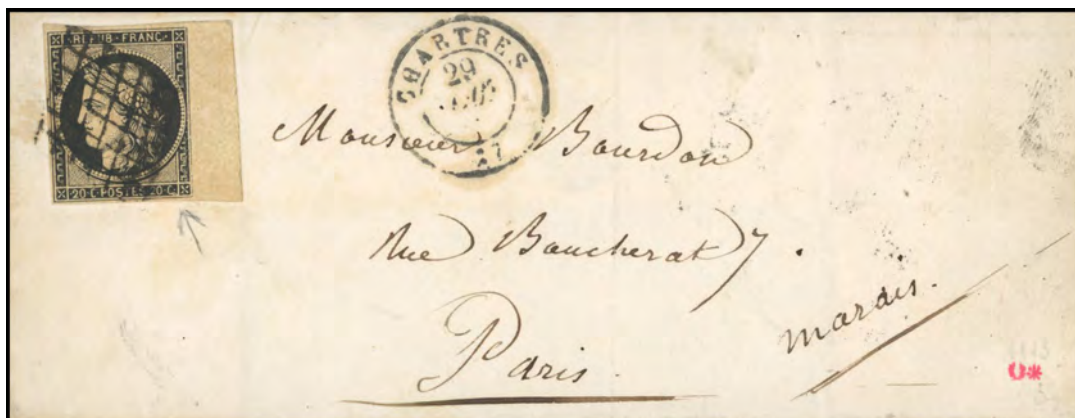 REPUB·FRANC·
20·C·POSTES·20·C·
CHARTRES
29
27
Monsieur Bourdon
Rue Boucherat 7.
Paris.
marais.
U*